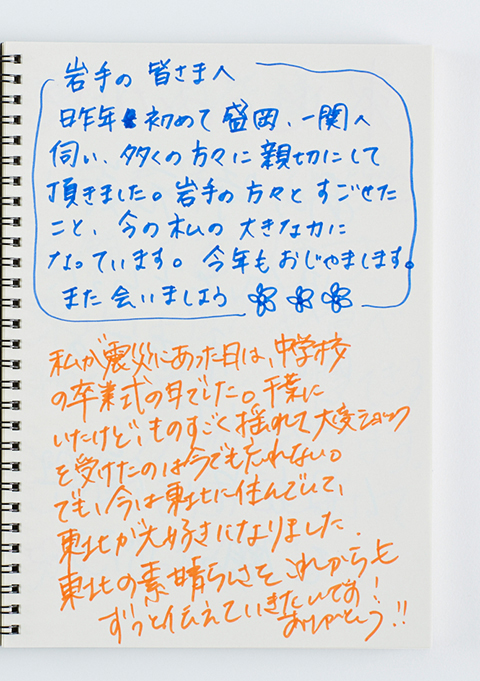 岩手の 皆さまへ
昨年 初めて 盛岡、一関へ
伺い、多くの方々に親切にして
頂きました。岩手の方々とすごせた
こと、今の私の大きな力に
なっています。今年もおじゃまします。
また会いましょう
私が震災にあった日は、中学校
の卒業式の日でした。千葉に
いたけど、ものすごく揺れて大変ショック
を受けたのは今でも忘れない。
でも、今は東北に住んでいて、
東北が大好きになりました.
東北の素晴らしさを これからも
ずっと伝えていきたいです!
ありがとう!!